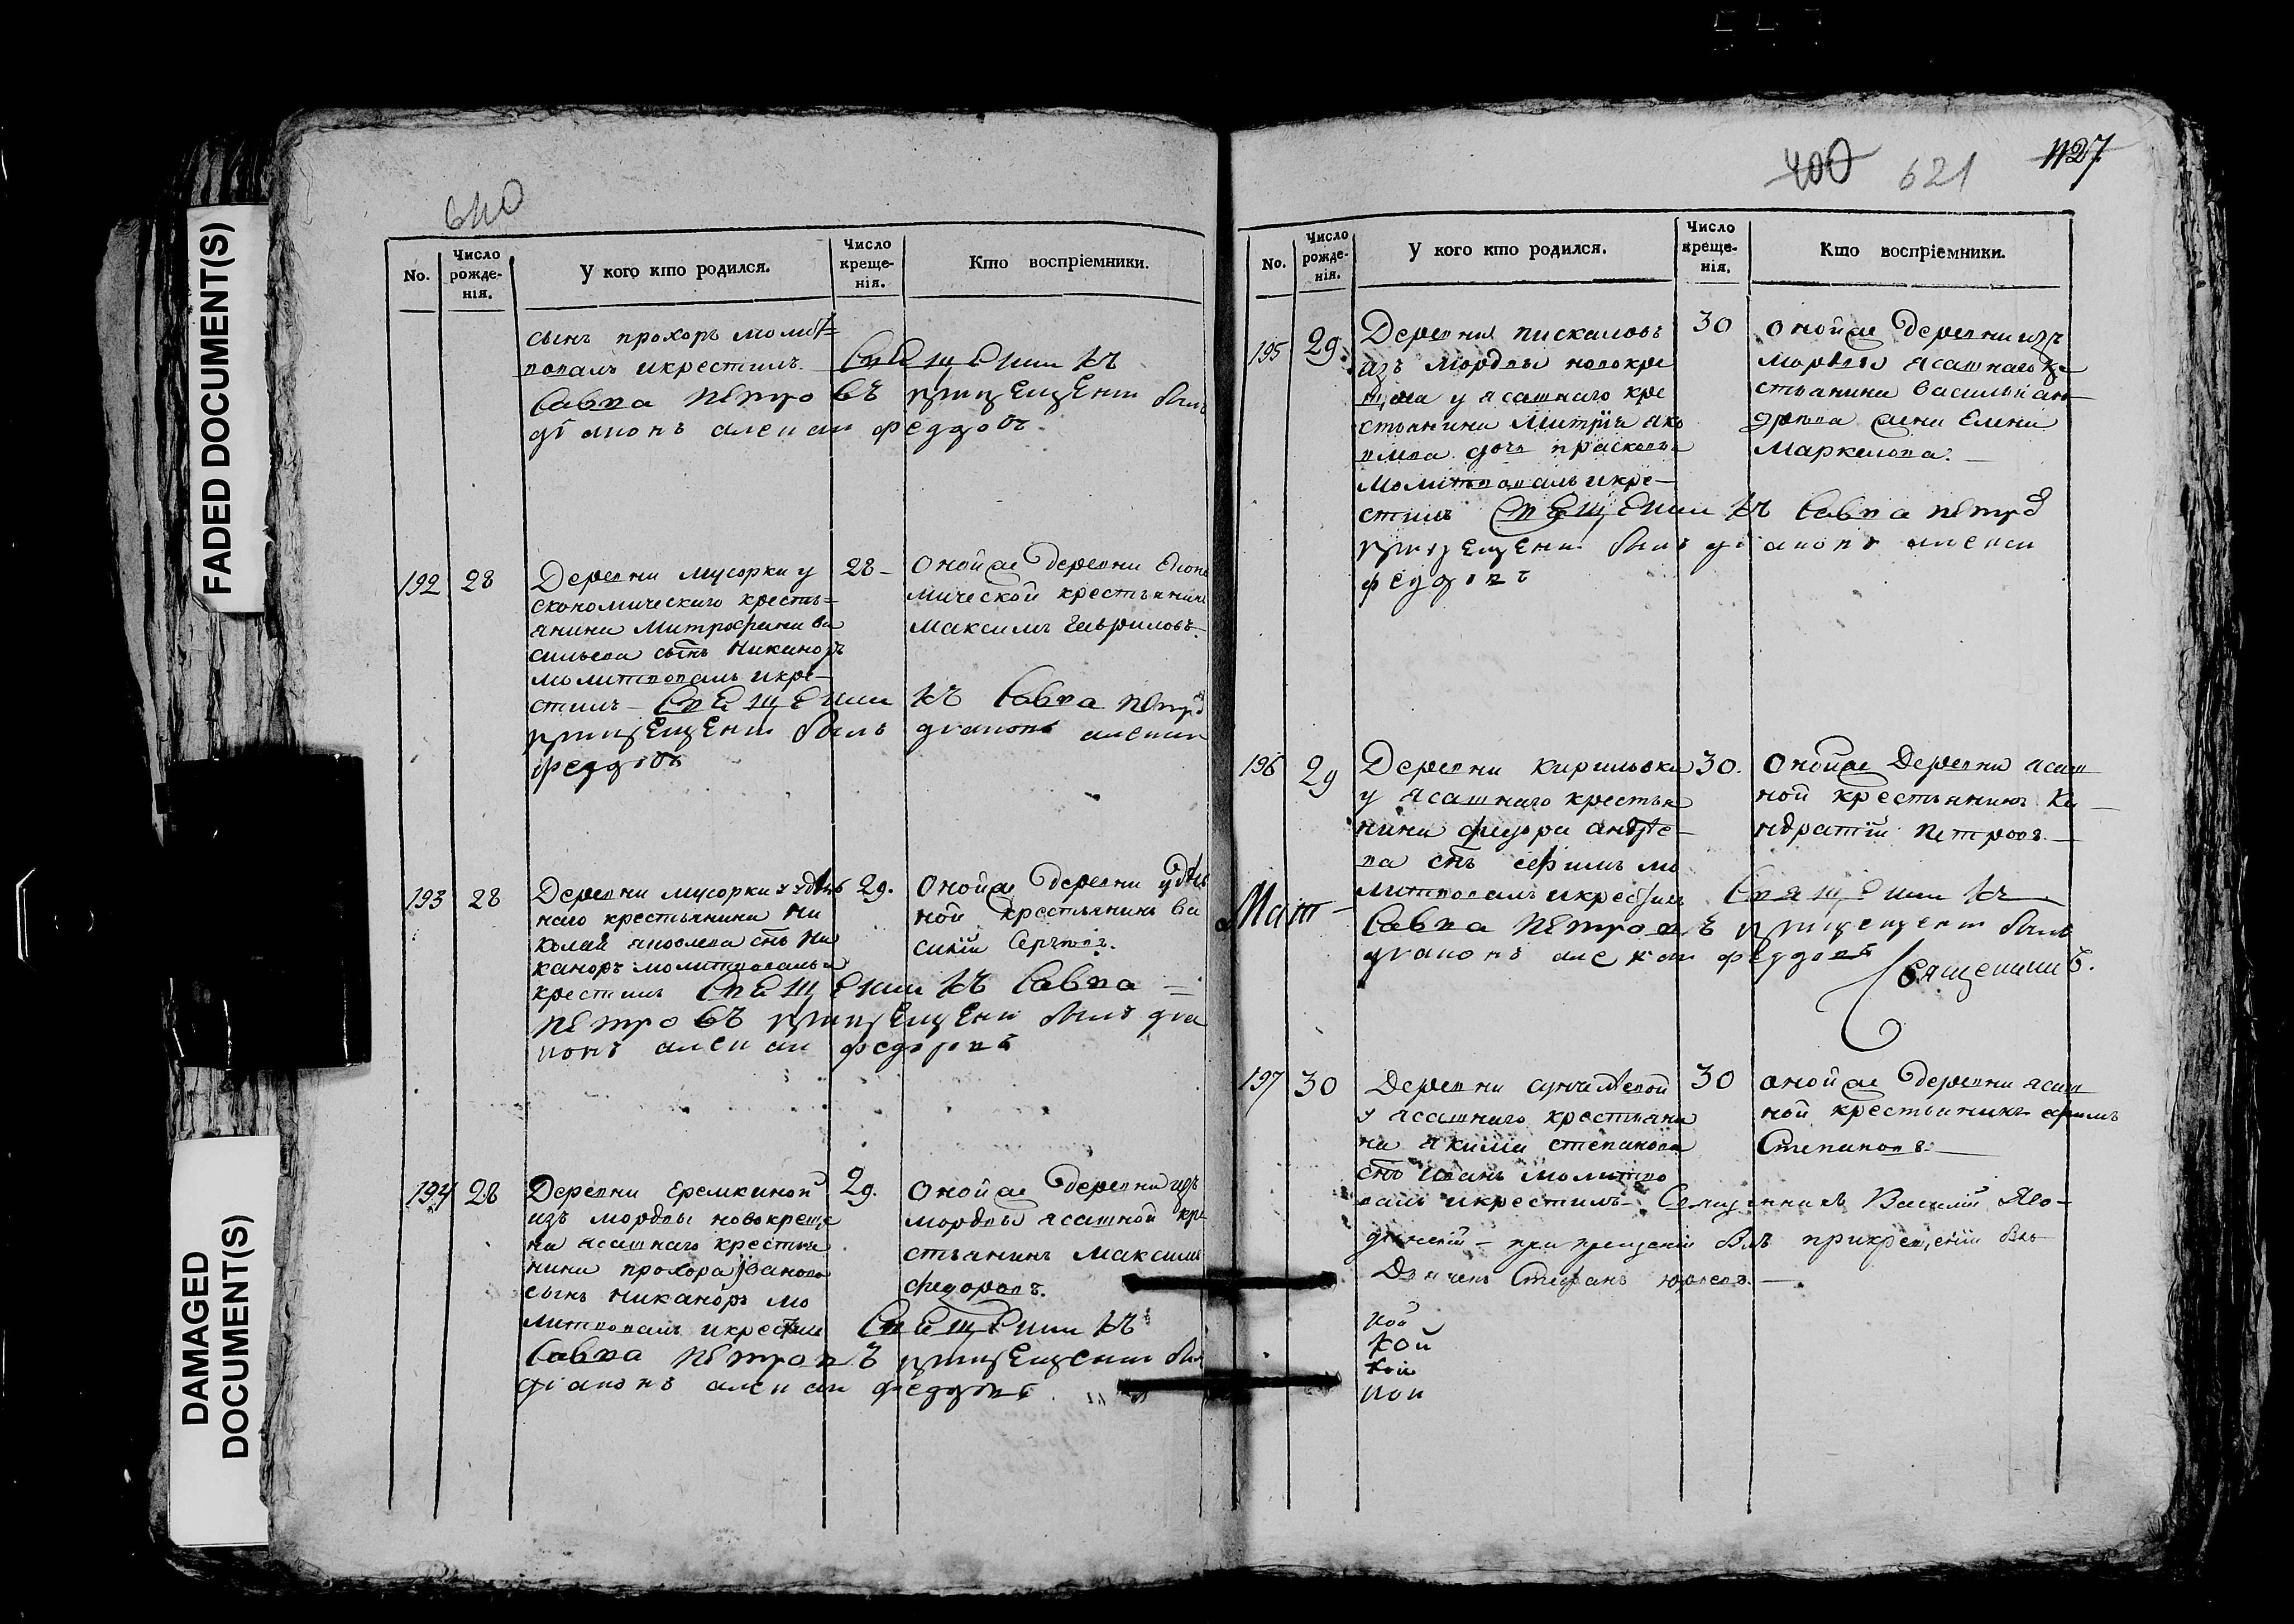 FADED DOCUMENT(S)
DAMAGED
DOCUMENT(S)
No.
Число рожде-нія.
У кого кто родился.
Число креще-нія.
Кто воспріемники.
сынъ прохоръ молит=
вовалъ икрестилъ. Священникъ
Савва Петровъ прикрещеніи былъ
діаконъ алексаи феддовъ
192 28
Деревни Мусорки у
економическаго кресть=
янина Митрофана ва
сильева сынъ Никаноръ
молитвовалъ икре-
стилъ - Священникъ Савва Петро
прикрещеніи былъ діаконъ алексаи
феддовъ
28-
Онойже деревни Еконо
мической крестьянинъ
Максимъ Гавриловъ.
193 28
Деревни мусорки у удель
наго крестьянина Ни
колая яковлева снъ Ни
каноръ молитвовалъ и
крестилъ Священникъ Савва =
Петровъ прикрещени былъ дга
конъ алексаи федоровъ
29.
Онойже деревни удель
ной крестьянинъ Ва
силій Сергѣевъ.
194 28
Деревни Еремкиной
изъ мордвы новокреще
на ясашнаго крестья
нина прохора Иванова
сынъ Никаноръ мо
литвовалъ икрестилъ Священникъ
Савва Петровъ прикрещении был
діаконъ алексаи феддовъ
29.
Онойже деревни изъ
мордвы ясашной кре
стьянинъ Максимъ
федоровъ.
400 621 1127
No.
Число рожде-нія.
У кого кто родился.
Число креще-нія.
Кто воспріемники.
195 29.
Деревни пискаловъ
изъ мордвы новокре
щена у ясашнаго кре
стьянина Митрія яко
влева дочь прасковья
Молитвовалъ икре-
стилъ Священникъ Савва Петро
прикрещени былъ діаконъ алексаи
феддовъ
30
Онойже деревни изъ
мордвы ясашнаго кре
стьянина василья ан
дрѣева жена Елена
Маркелова.
196 29
Деревни Кириловки
у ясашнаго крестья
нина федора андре-
ва снъ ефимъ мо
литвовалъ икрестилъ Священникъ
Савва Петровъ прикрещени былъ
діаконъ алексаи феддовъ
Священникъ.
30.
Онойже Деревни ясаш
ной крестьянинъ Ко
ндратій Петровъ.
197 30
у ясашнаго крестьяни
на якима степанова
снъ Иванъ молитво
валъ икрестилъ Священникъ Василій
30
Онойже деревни ясаш
ной крестьянинъ ефимъ
Степановъ.
Дьячекъ Стефанъ
кой
кой
кой
кой